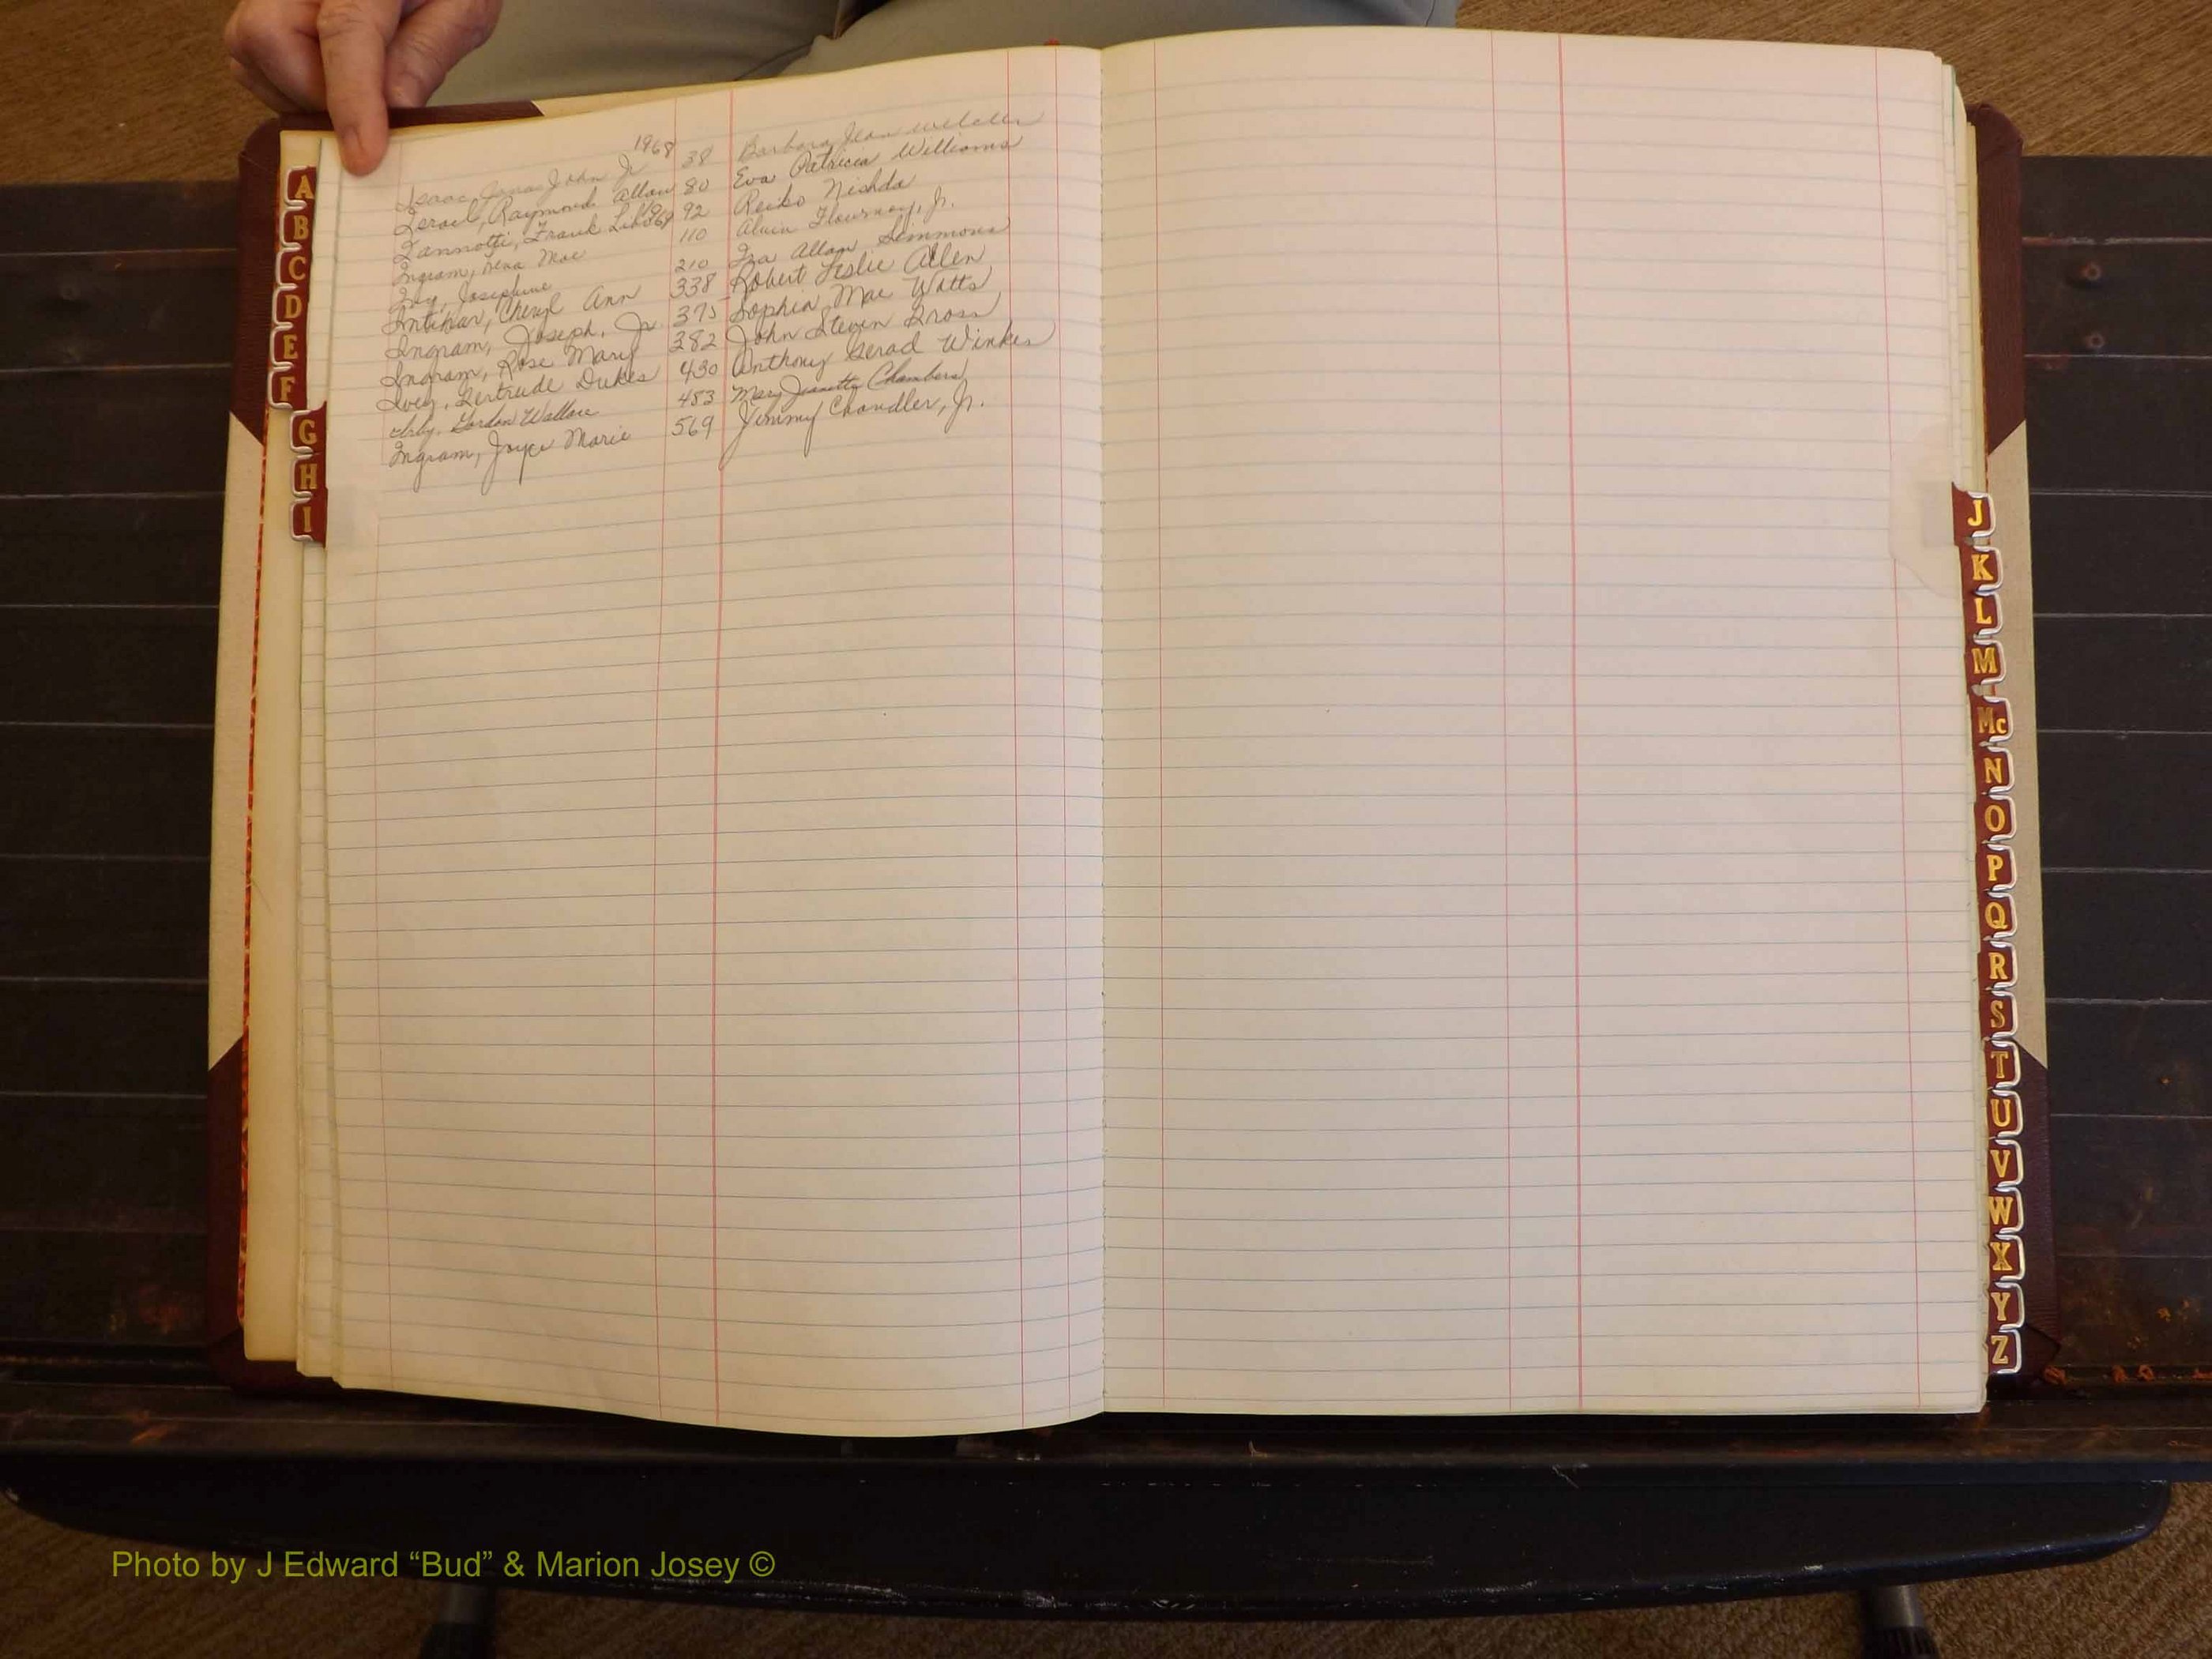 1968
Isaac, James John Jr 38 Barbara Jean
Israel, Raymond Allan 80 Eva Patricia Williams
Iannotti, Frank 92 Reiko Nishda
1969
Ingram, Lena Mae 110 Alvin Flournoy, Jr.
Ivy, Josephine 210 Ira Allan Simmons
Cheryl Ann 338 Robert Leslie Allen
Ingram, Joseph, Jr. 375 Sophia Mae Watts
Ingram, Rose Mary 382 John Steven
Ivey, Gertrude Dukes 430 Anthony Gerad
Irby, Gordon Wallace 483 Mary Jeanette Chambers
Ingram, Joyce Marie 569 Jimmy Chandler, Jr.
A
B
C
D
E
F
G
H
I
J
K
L
M
Mc
N
O
P
Q
R
S
T
U
V
W
X
Y
Z
Photo by J Edward “Bud” & Marion Josey ©